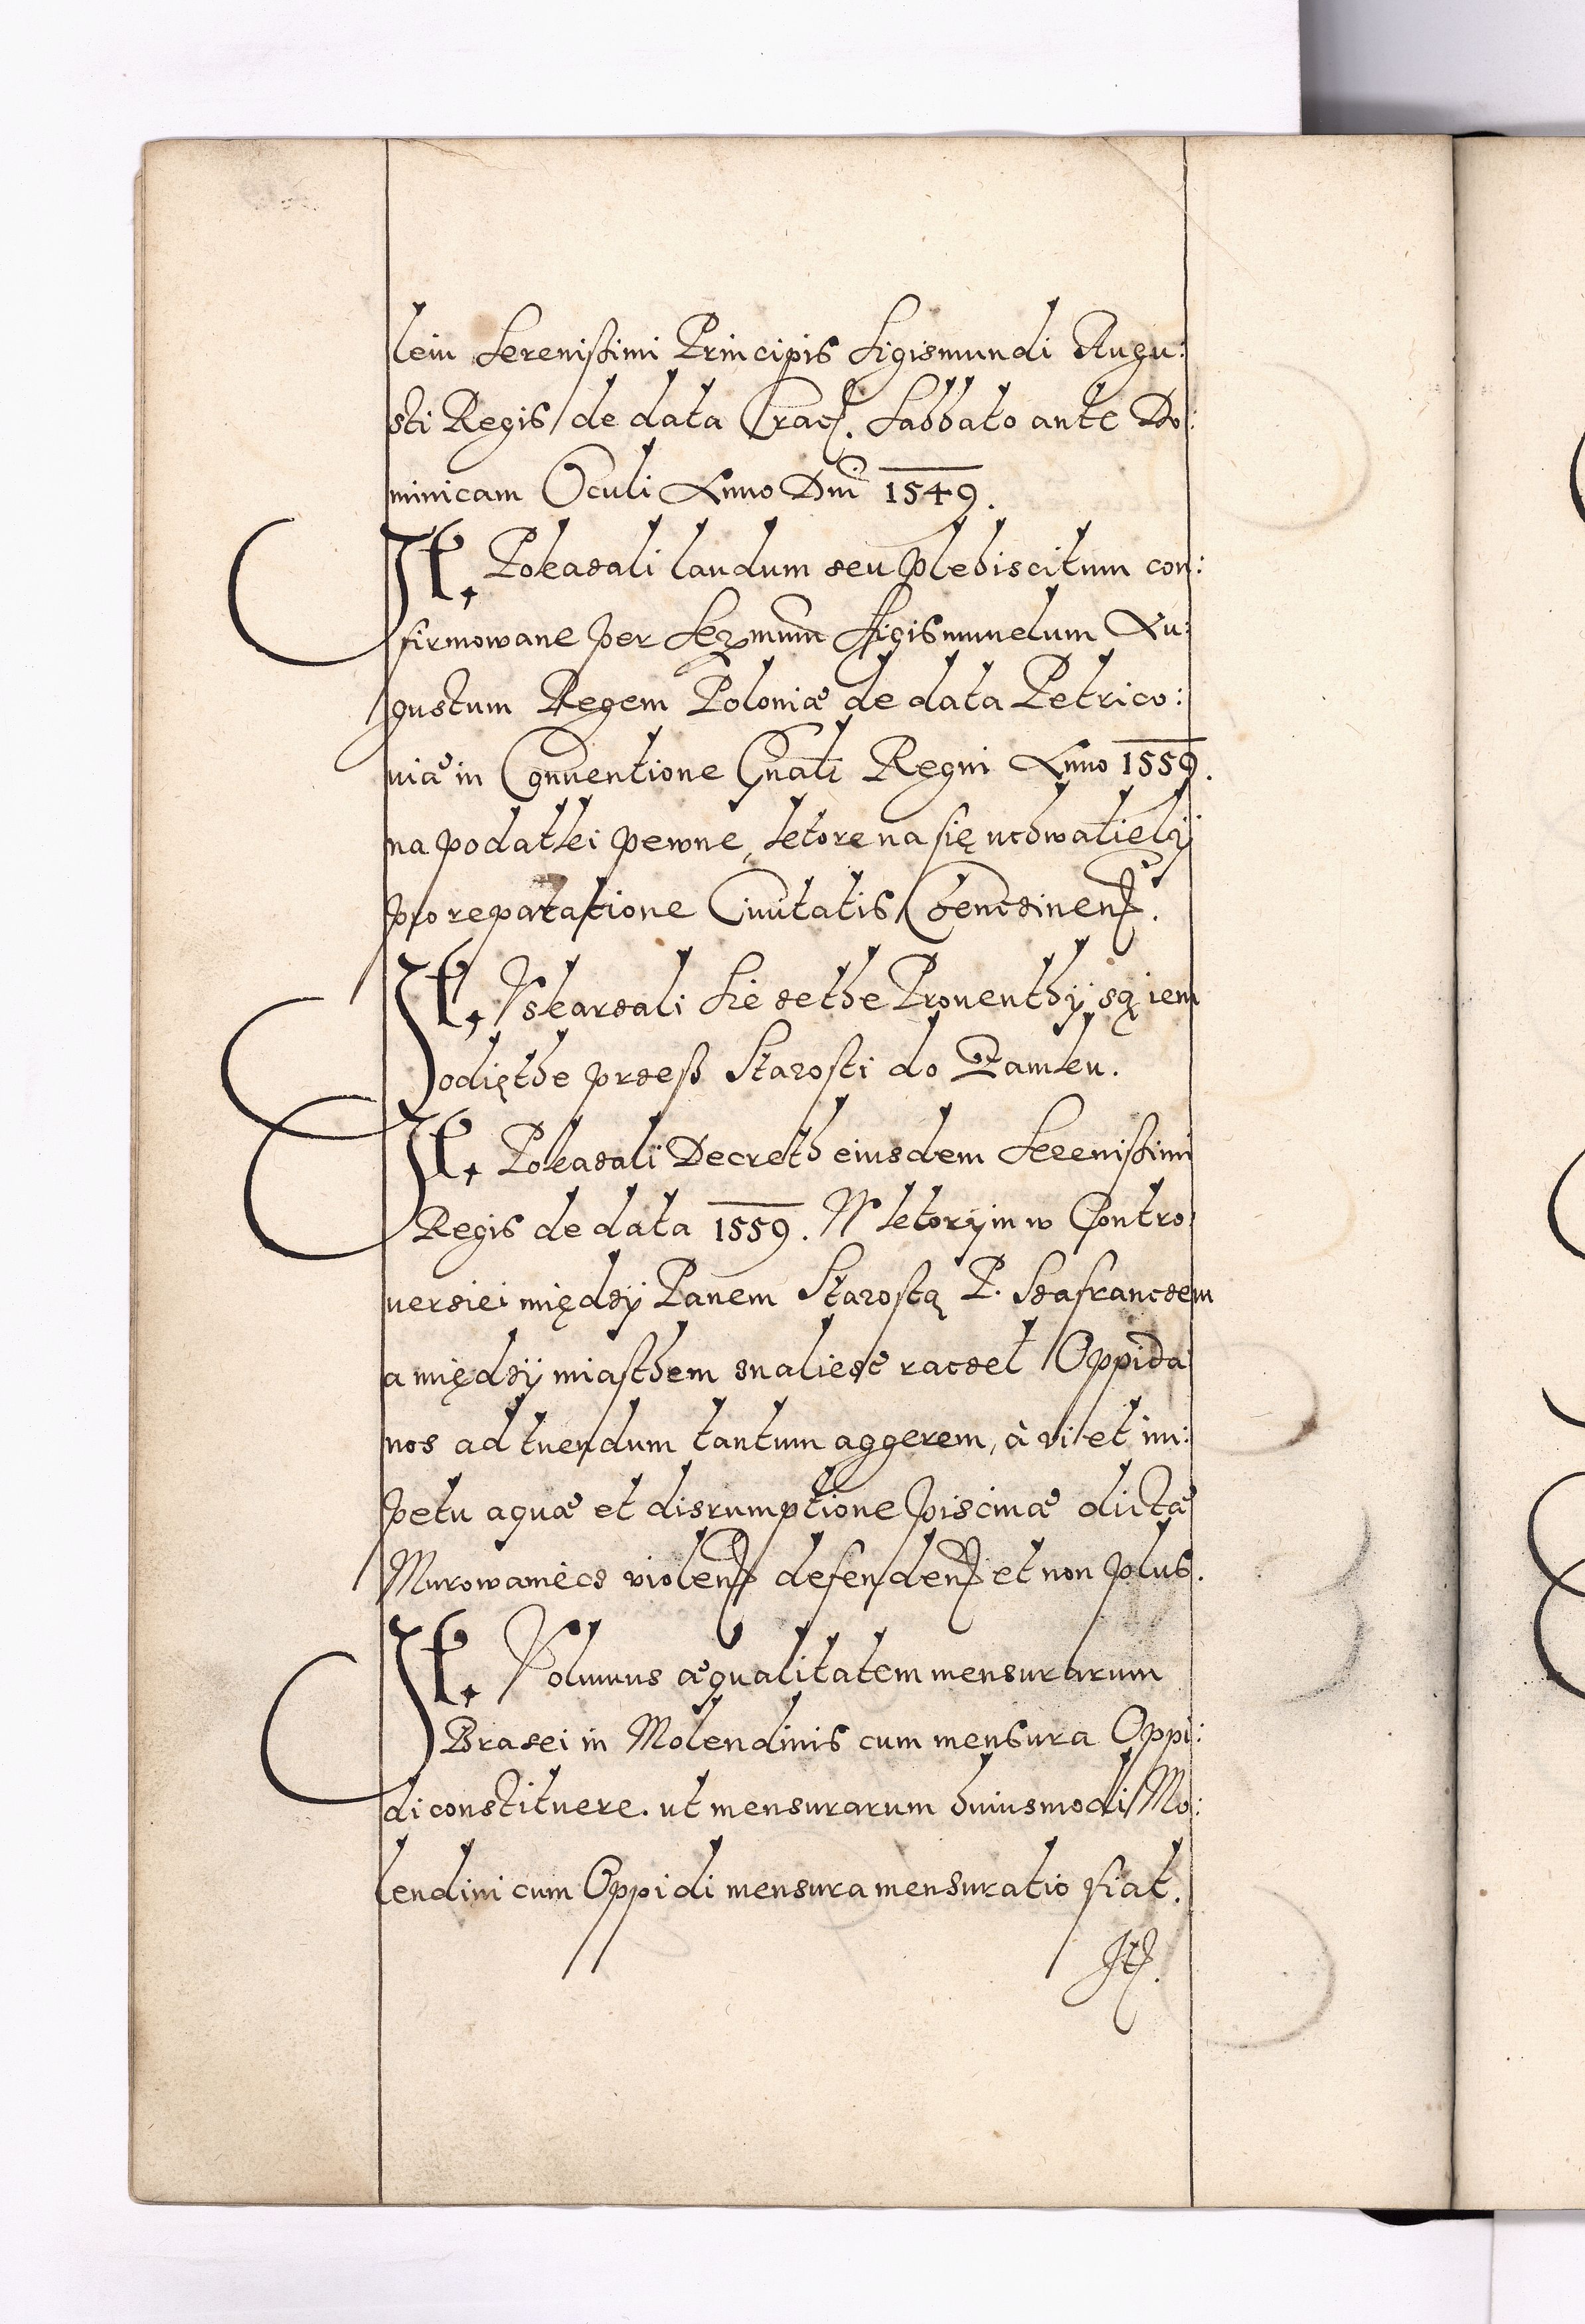 lem Serenißimi Principis Sigismundi Augu:
sti Regis de data Crac. Sabbato ante Do:
minicam Oculi Anno Dni 1549.
It. Pokazali laudum seu plebiscitum con:
firmowane per Sermum Sigismundum Au:
gustum Regem Poloniæ de data Petrico:
uiæ in Conuentione Gnali Regni Anno 1559.
na podatki pewne, ktore na się uchwalieli
pro reparatione Ciuitatis Chencinen.
It. Vskarzali sie ze the Prouenthy są iem
odięthe przeß Starosti do Zamku.
It. Pokazali Decreth eiusdem Serenißimi
Regis de data 1559. W ktorym w Contro:
uersiei między Panem Starostą P. Szafranczem
a między miasthem znaliesc raczel Oppida
nos ad tuendum tantum aggerem, à vi et im:
petu aquæ et disrumptione piscinæ dictæ
Murowaniecz violen defenden et non plus.
It. Volumus æqualitatem mensurarum
Brasei in Molendinis cum mensura Oppi:
di constituere. ut mensurarum huiusmodi Mo:
lendini cum Oppidi mensura mensuratio fiat.
It.